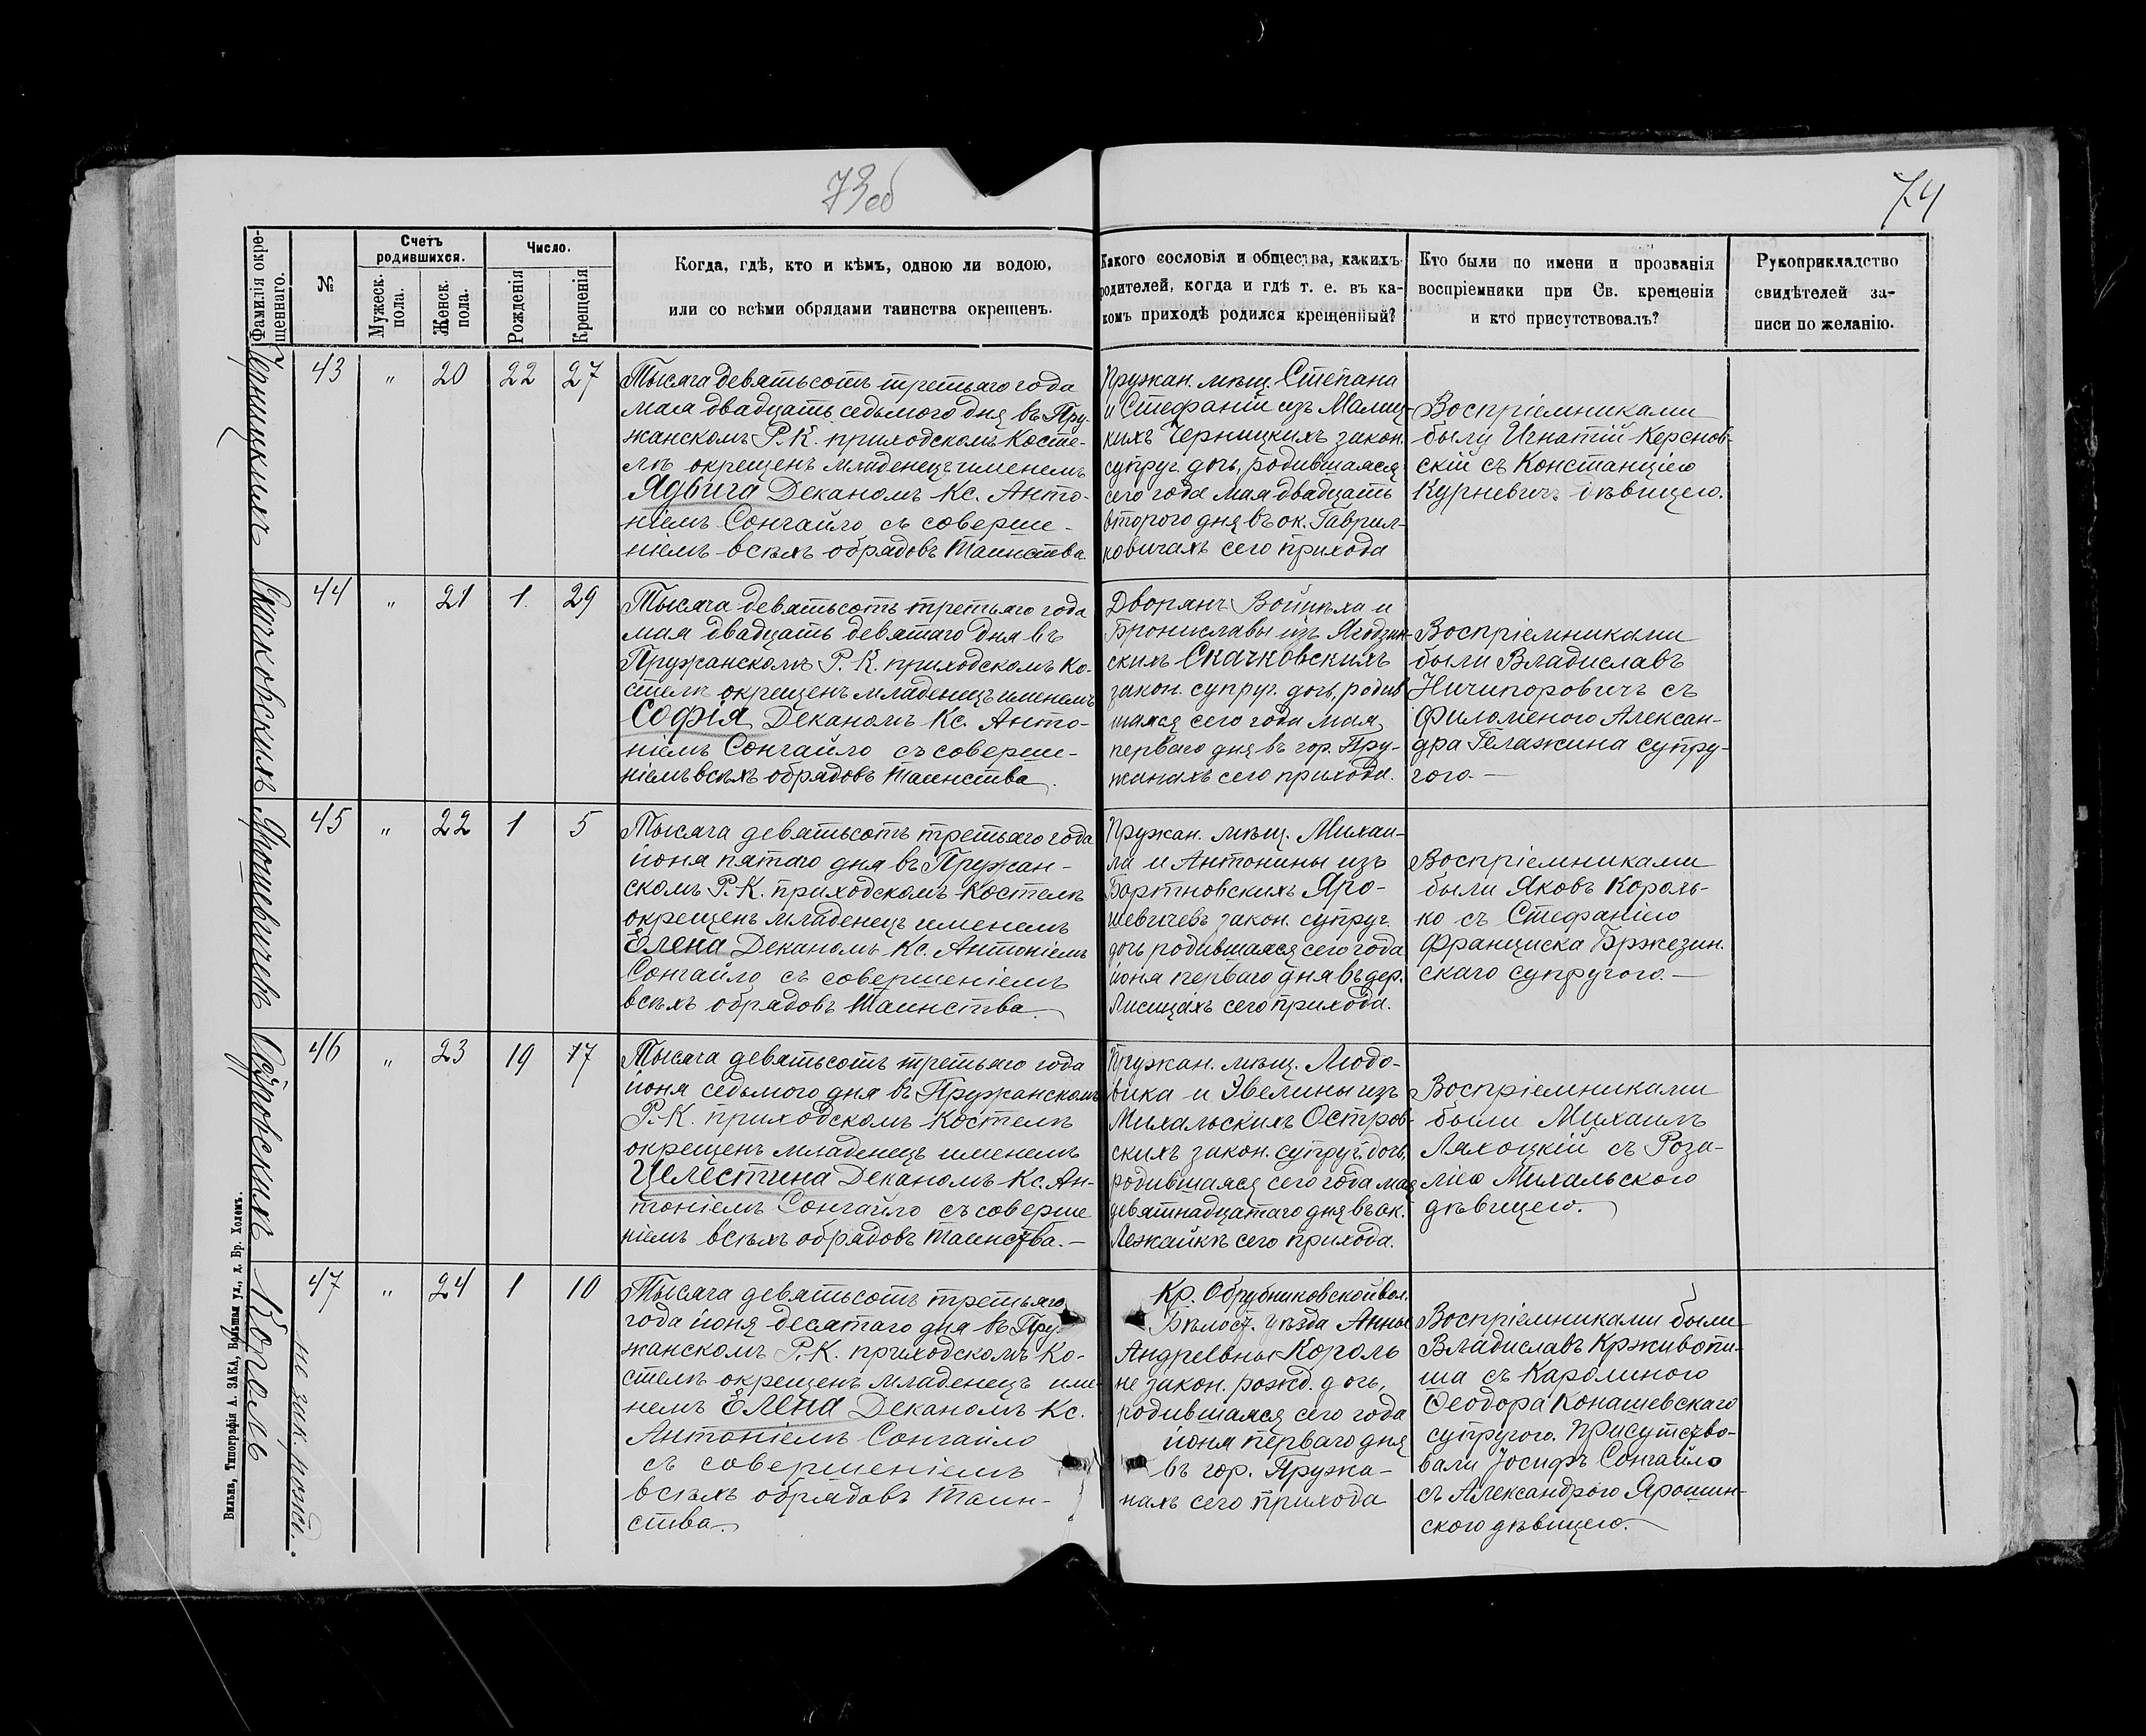 73 об
74
Фамилія окре-
щеннаго.
№
Счетъ
родившихся.
Мужеск.
пола.
Женск.
пола.
Число.
Рожденія
Крещенія
Когда, гдѣ, кто и кѣмъ, одною ли водою,
или со всѣми обрядами таинства окрещенъ.
Какого сословія и общества, какихъ
родителей, когда и гдѣ т. е. въ ка-
комъ приходѣ родился крещенный?
Кто были по имени и прозванія
воспріемники при Св. крещеніи
и кто присутствовалъ?
Рукоприкладство
свидѣтелей за-
писи по желанію.
Черницкихъ
43 " 20 22 27
Тысяча девятьсотъ третьяго года
мая двадцать седьмого дня въ Пру-
жанскомъ Р.К. приходскомъ Косте-
лѣ окрещенъ младенецъ именемъ
Ядвига Деканомъ Кс. Анто-
ніемъ Сонгайло съ соверше-
ніемъ всѣхъ обрядовъ Таинства
Пружан. мѣщ. Степана
и Стефаніи изъ Малиц-
кихъ Черницкихъ закон.
супруг. дочь, родившаяся
сего года мая двадцать
второго дня въ ок. Гаврил-
ковичахъ сего прихода
Воспріемниками
были Игнатій Керснов-
скій съ Констанціею
Курневичъ дѣвицею.
Скачковскихъ
44 " 21 1. 29
Тысяча девятьсотъ третьяго года
мая двадцать девятаго дня въ
Пружанскомъ Р.К. приходскомъ Ко-
стелѣ окрещенъ младенецъ именемъ
Софія Деканомъ Кс. Анто-
ніемъ Сонгайло съ соверше-
ніемъ всѣхъ обрядовъ Таинства.
Дворянъ Войцѣха и
Брониславы изъ Ягодзин-
скихъ Скачковскихъ
закон. супруг. дочь, родив
шаяся сего года мая
перваго дня въ гор. Пру-
жанахъ сего прихода.
Воспріемниками
были Владиславъ
Ничипоровичъ съ
Филоменою Алексан-
дра Гелажина супру-
гою.—
Ярошевичевъ
45 " 22 1 5
Тысяча девятьсотъ третьяго года
іюня пятаго дня въ Пружан-
скомъ Р.К. приходскомъ Костелѣ
окрещенъ младенецъ именемъ
Елена Деканомъ Кс. Антоніемъ
Сонгайло съ совершеніемъ
всѣхъ обрядовъ Таинства.
Пружан. мѣщ. Михаи-
ла и Антонины изъ
Бортновскихъ Яро-
шевичевъ закон. супруг.
дочь родившаяся сего года
іюня перваго дня въ дер.
Лисицахъ сего прихода.
Воспріемниками
были Яковъ Король-
ко съ Стефаніею
Франциска Бржезин.
скаго супругою.—
Островскихъ
46 " 23 19 17
Тысяча девятьсотъ третьяго года
іюня седьмого дня въ Пружанскомъ
Р.К. приходскомъ Костелѣ
окрещенъ младенецъ именемъ
Целестина Деканомъ Кс. Ан-
тоніемъ Сонгайло съ соверше
ніемъ всѣхъ обрядовъ Таинства.—
Пружан. мѣщ. Людо-
вика и Эвелины изъ
Михальскихъ Остров-
скихъ закон. супруг. дочь,
родившаяся сего года мая
девятнадцатаго дня въ ок.
Лежайкѣ сего прихода.
Воспріемниками
были Михаилъ
Ляхоцкій съ Роза-
ліею Михальского
дѣвицею.
Король
не зак. рожд.
47 " 24 1 10
Тысяча девятьсотъ третьяго
года іюня десятаго дня въ Пру-
жанскомъ Р.К. приходскомъ Ко-
стелѣ окрещенъ младенецъ име-
немъ Елена Деканомъ Кс.
Антоніемъ Сонгайло
съ совершеніемъ
всѣхъ обрядовъ Таин-
ства.
Кр. Обрубниковской вол.
Бѣлост. уѣзда Анны
Андреевны Король
не закон. рожд. дочь,
родившаяся сего года
іюня перваго дня
въ гор. Пружа-
нахъ сего прихода
Воспріемниками были
Владиславъ Крживопи-
ша съ Каролиною
Ѳеодора Конашевскаго
супругою. Присутство-
вали Іосифъ Сонгайло
съ Александрою Ярошин-
ского дѣвицею.
Вильна, Типографія А. ЗАКА, Большая ул., д. Бр. Холемъ.